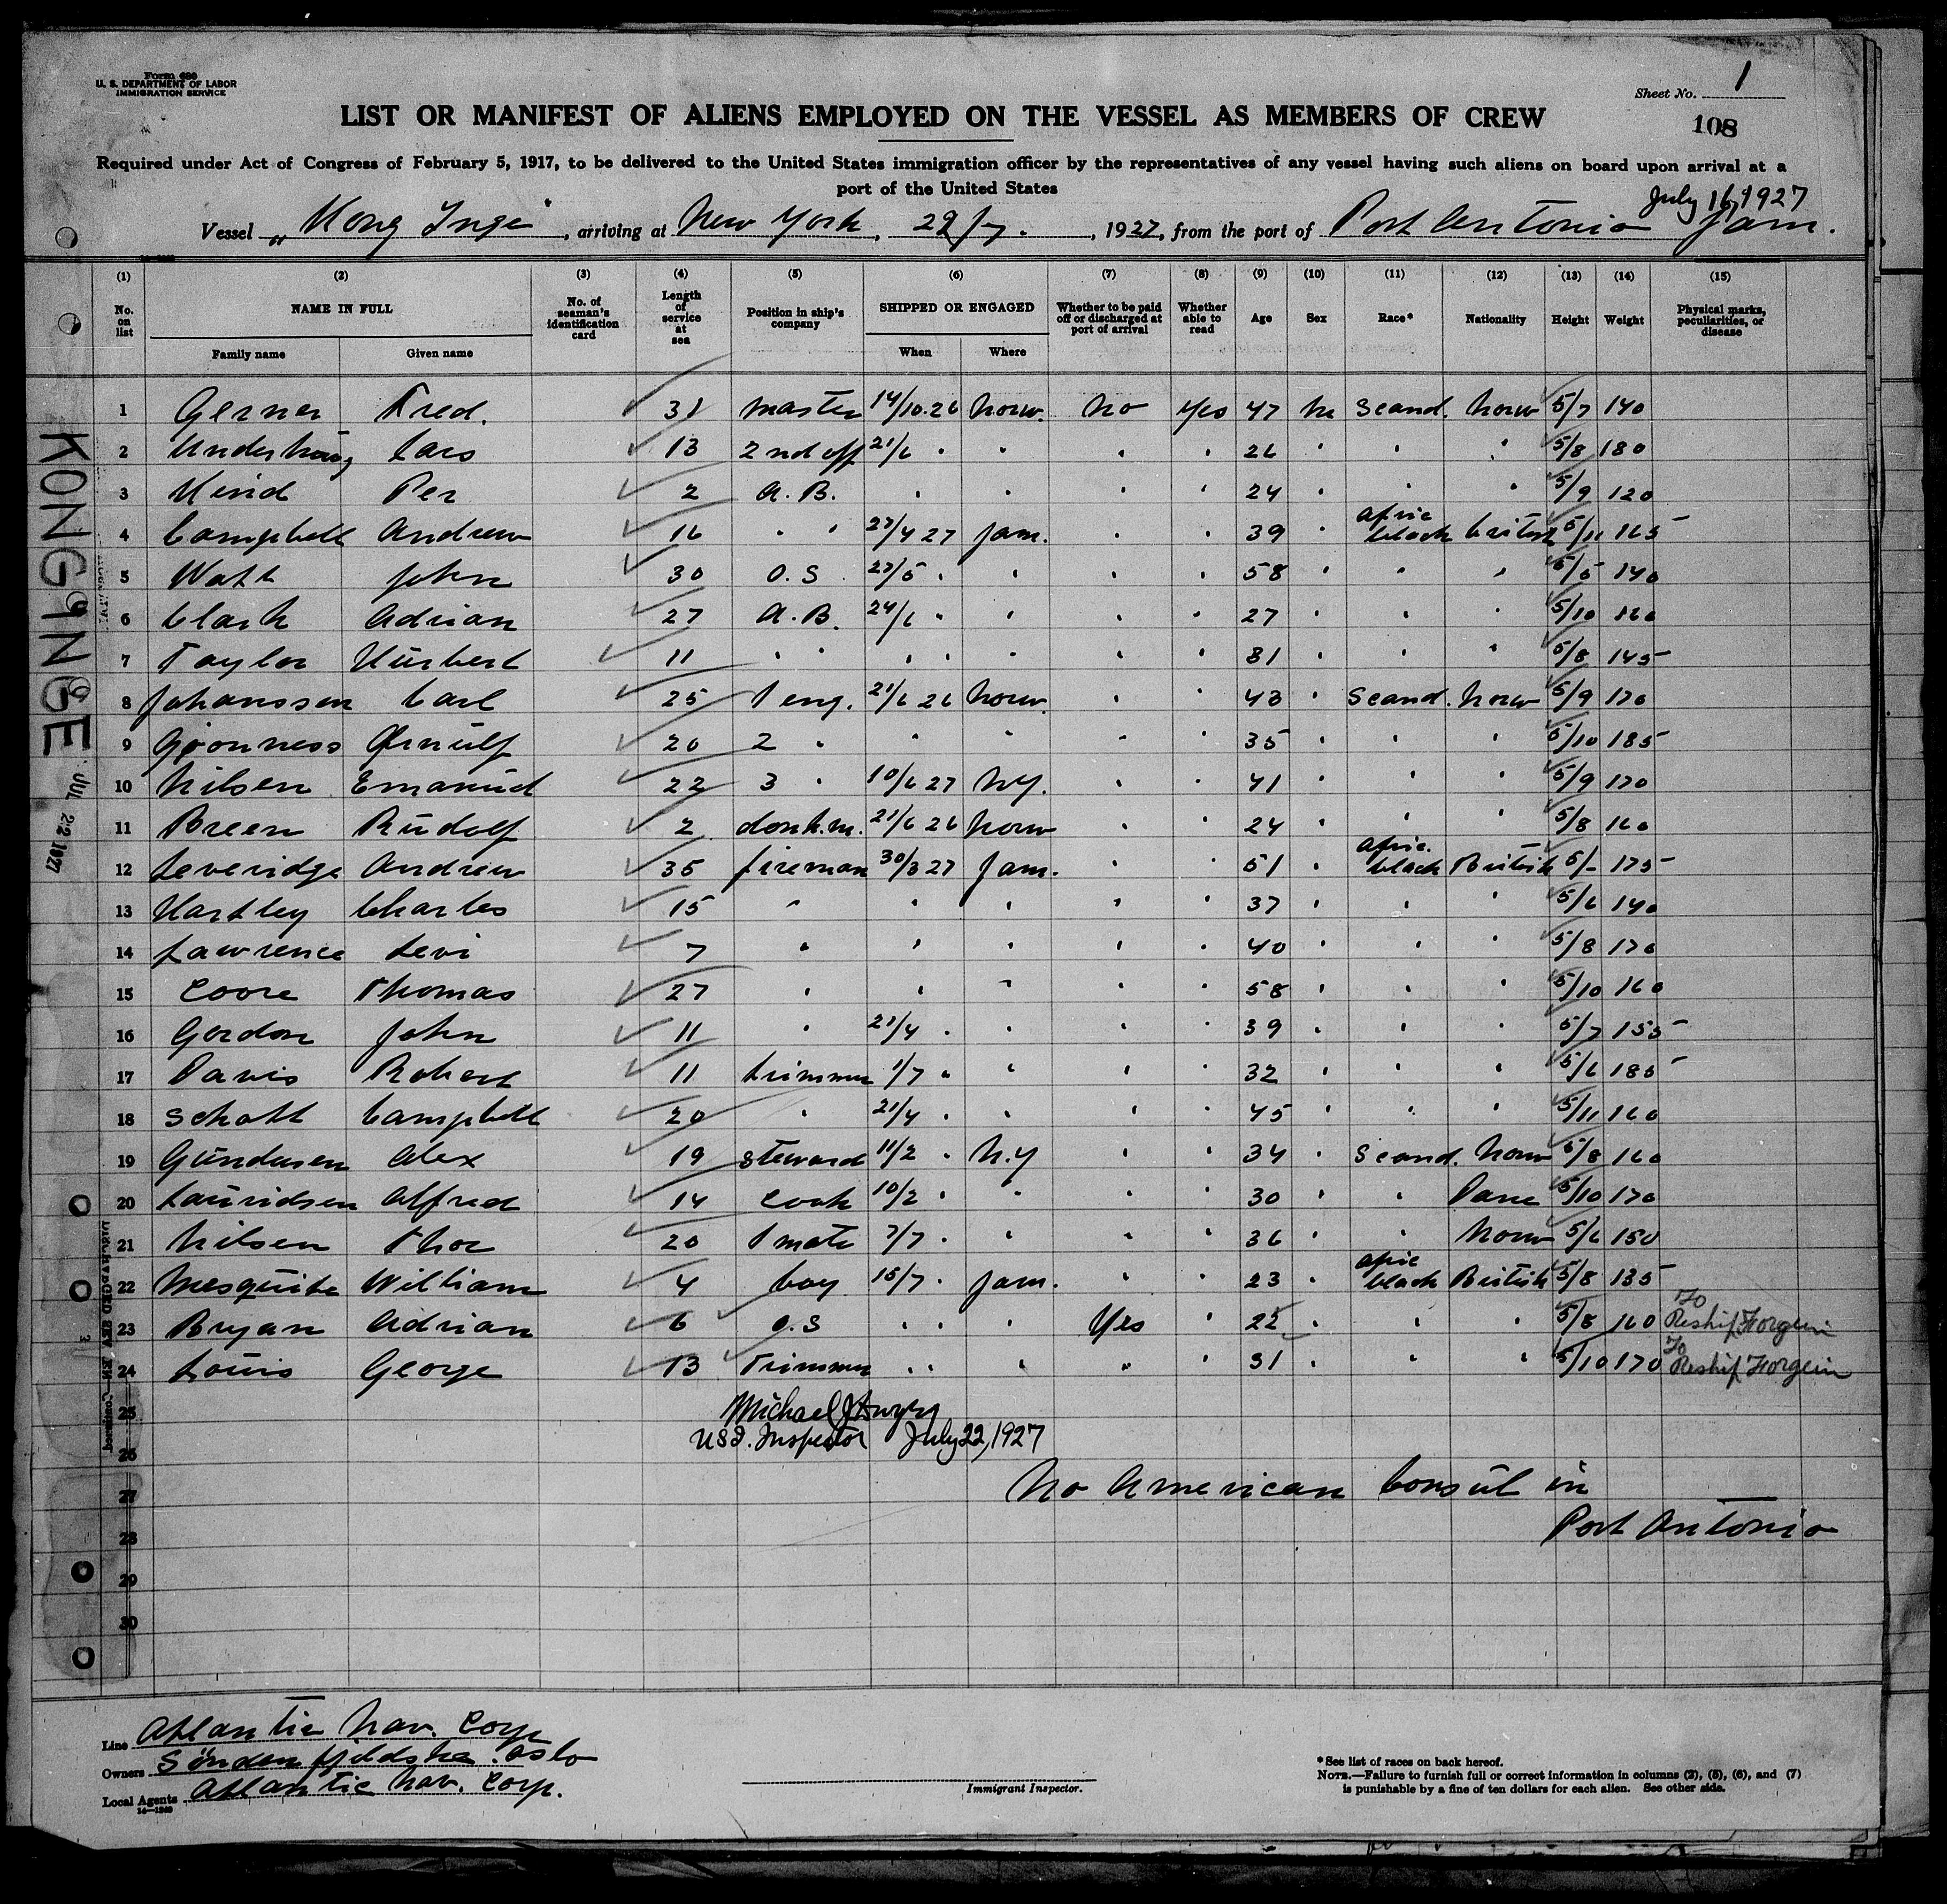 Form 680
U. S. DEPARTMENT OF LABOR
IMMIGRATION SERVICE
Sheet No. 1
LIST OR MANIFEST OF ALIENS EMPLOYED ON THE VESSEL AS MEMBERS OF CREW
108
Required under Act of Congress of February 5, 1917, to be delivered to the United States immigration officer by the representatives of any vessel having such aliens on board upon arrival at a
port of the United States
July 16, 1927
Vessel „Kong Inge", arriving at New York, 22/7., 1927, from the port of Port Antonio Jam.
(1) (2) (3) (4) (5) (6) (7) (8) (9) (10) (11) (12) (13) (14) (15)
No. on list NAME IN FULL No. of seaman's identification card Length of service at sea Position in ship's company SHIPPED OR ENGAGED Whether to be paid off or discharged at port of arrival Whether able to read Age Sex Race* Nationality Height Weight Physical marks, peculiarities, or disease
Family name Given name When Where
1 Gerner Fred. 31 master 14/10.26 norw. no yes 47 m Scand. norw 5/7 140
2 Lars 13 2nd off 21/6 " " " " 26 " " " 5/8 180
3 Per 2 A.B. " " " " 24 " " " 5/9 120
4 Campbell Andrew 16 " " 27/4 27 Jam. " " 39 " afric black british 5/11 165
5 Watt John 30 O.S. 27/5 " " " " 58 " " " 5/5 140
6 Clark Adrian 27 A.B. 24/6 " " " " 27 " " " 5/10 160
7 Taylor Hurbert 11 " " " " " " " 31 " " " 5/8 145
8 Johanssen Carl 25 1 eng. 21/6 26 norw. " " 43 " Scand. norw 5/9 170
9 20 2 " " " " " 35 " " " 5/10 185
10 Nilsen Emanuel 22 3 " 10/6 27 NY. " " 41 " " " 5/9 170
11 Breen Rudolf 2 donk.m. 21/6 26 norw " " 24 " " " 5/8 160
12 Leveridge Andrew 35 fireman 30/3 27 Jam. " " 51 " afric. black British 5/- 175
13 Hartley Charles 15 " " " " " 37 " " " 5/6 140
14 Lawrence Levi 7 " " " " " 40 " " " 5/8 170
15 Coore Thomas 27 " " " " " 58 " " " 5/10 160
16 Gordon John 11 " 21/4 " " " " 39 " " " 5/7 155
17 Davis Robert 11 trimmer 1/7 " " " " 32 " " " 5/6 185
18 Schott Campbell 20 " 21/4 " " " " 45 " " " 5/11 160
19 Gundersen Alex 19 steward 11/2 " N.Y " " 34 " Scand. norw 5/8 160
20 Lauridsen Alfred 14 cook 10/2 " " " " 30 " " Dane 5/10 170
21 Nilsen Thor 20 1 mate 7/7 " " " " 36 " " norw 5/6 150
22 Mesquita William 4 boy 15/7 " Jam. " " 23 " afric black British 5/8 135
23 Bryan Adrian 6 O.S " " " Yes " 22 " " " 5/8 160 To Reship Forgein
24 Louis George 13 Trimmer " " " " " 31 " " " 5/10 170 To Reship Forgein
25
Michael J Dwyer
26
U.S.I. Inspector July 22, 1927
27
No American Consul in
28
Port Antonio
29
30
KONG INGE
JUL 22 1927
Line Atlantic Nav. Corp
Owners Söndenfjeldske. Oslo
Local Agents Atlantic Nav. Corp.
14—1240
Immigrant Inspector.
*See list of races on back hereof.
NOTE.—Failure to furnish full or correct information in columns (2), (5), (6), and (7)
is punishable by a fine of ten dollars for each alien. See other side.